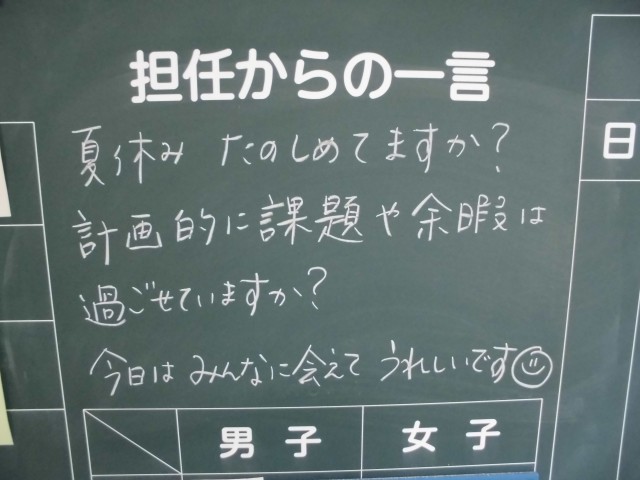 担任からの一言
夏休み たのしめてますか?
計画的に課題や余暇は
過ごせていますか?
今日は みんなに会えて うれしいです☺
日
男子
女子